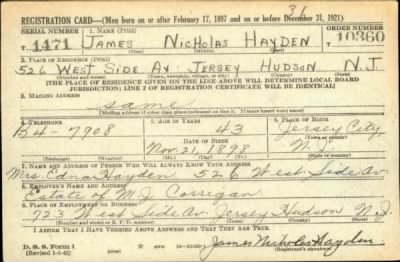 36
REGISTRATION CARD—(Men born on or after February 17, 1897 and on or before December 31, 1921)
SERIAL NUMBER 1. NAME (Print) ORDER NUMBER
T 1471 JAMES NICHOLAS HAYDEN 10360
(First) (Middle) (Last)
2. PLACE OF RESIDENCE (Print)
526 WEST SIDE AV. JERSEY HUDSON N.J.
(Number and street) (Town, township, village, or city) (County) (State)
[THE PLACE OF RESIDENCE GIVEN ON THE LINE ABOVE WILL DETERMINE LOCAL BOARD
JURISDICTION; LINE 2 OF REGISTRATION CERTIFICATE WILL BE IDENTICAL]
3. MAILING ADDRESS
same
[Mailing address if other than place indicated on line 2. If same insert word same]
4. TELEPHONE 5. AGE IN YEARS 6. PLACE OF BIRTH
B4-7908 43 Jersey City,
DATE OF BIRTH (Town or county)
Nov. 21, 1898 N.J.
(Exchange) (Number) (Mo.) (Day) (Yr.) (State or country)
7. NAME AND ADDRESS OF PERSON WHO WILL ALWAYS KNOW YOUR ADDRESS
Mrs. Edna Hayden 526 West Side Av.
8. EMPLOYER'S NAME AND ADDRESS
Estate of M.J. Corrigan
9. PLACE OF EMPLOYMENT OR BUSINESS
723 West Side Av. Jersey Hudson N.J.
(Number and street or R. F. D. number) (Town) (County) (State)
I AFFIRM THAT I HAVE VERIFIED ABOVE ANSWERS AND THAT THEY ARE TRUE.
D. S. S. Form 1
(Revised 1-1-42) (over) James Nicholas Hayden
(Registrant's signature)